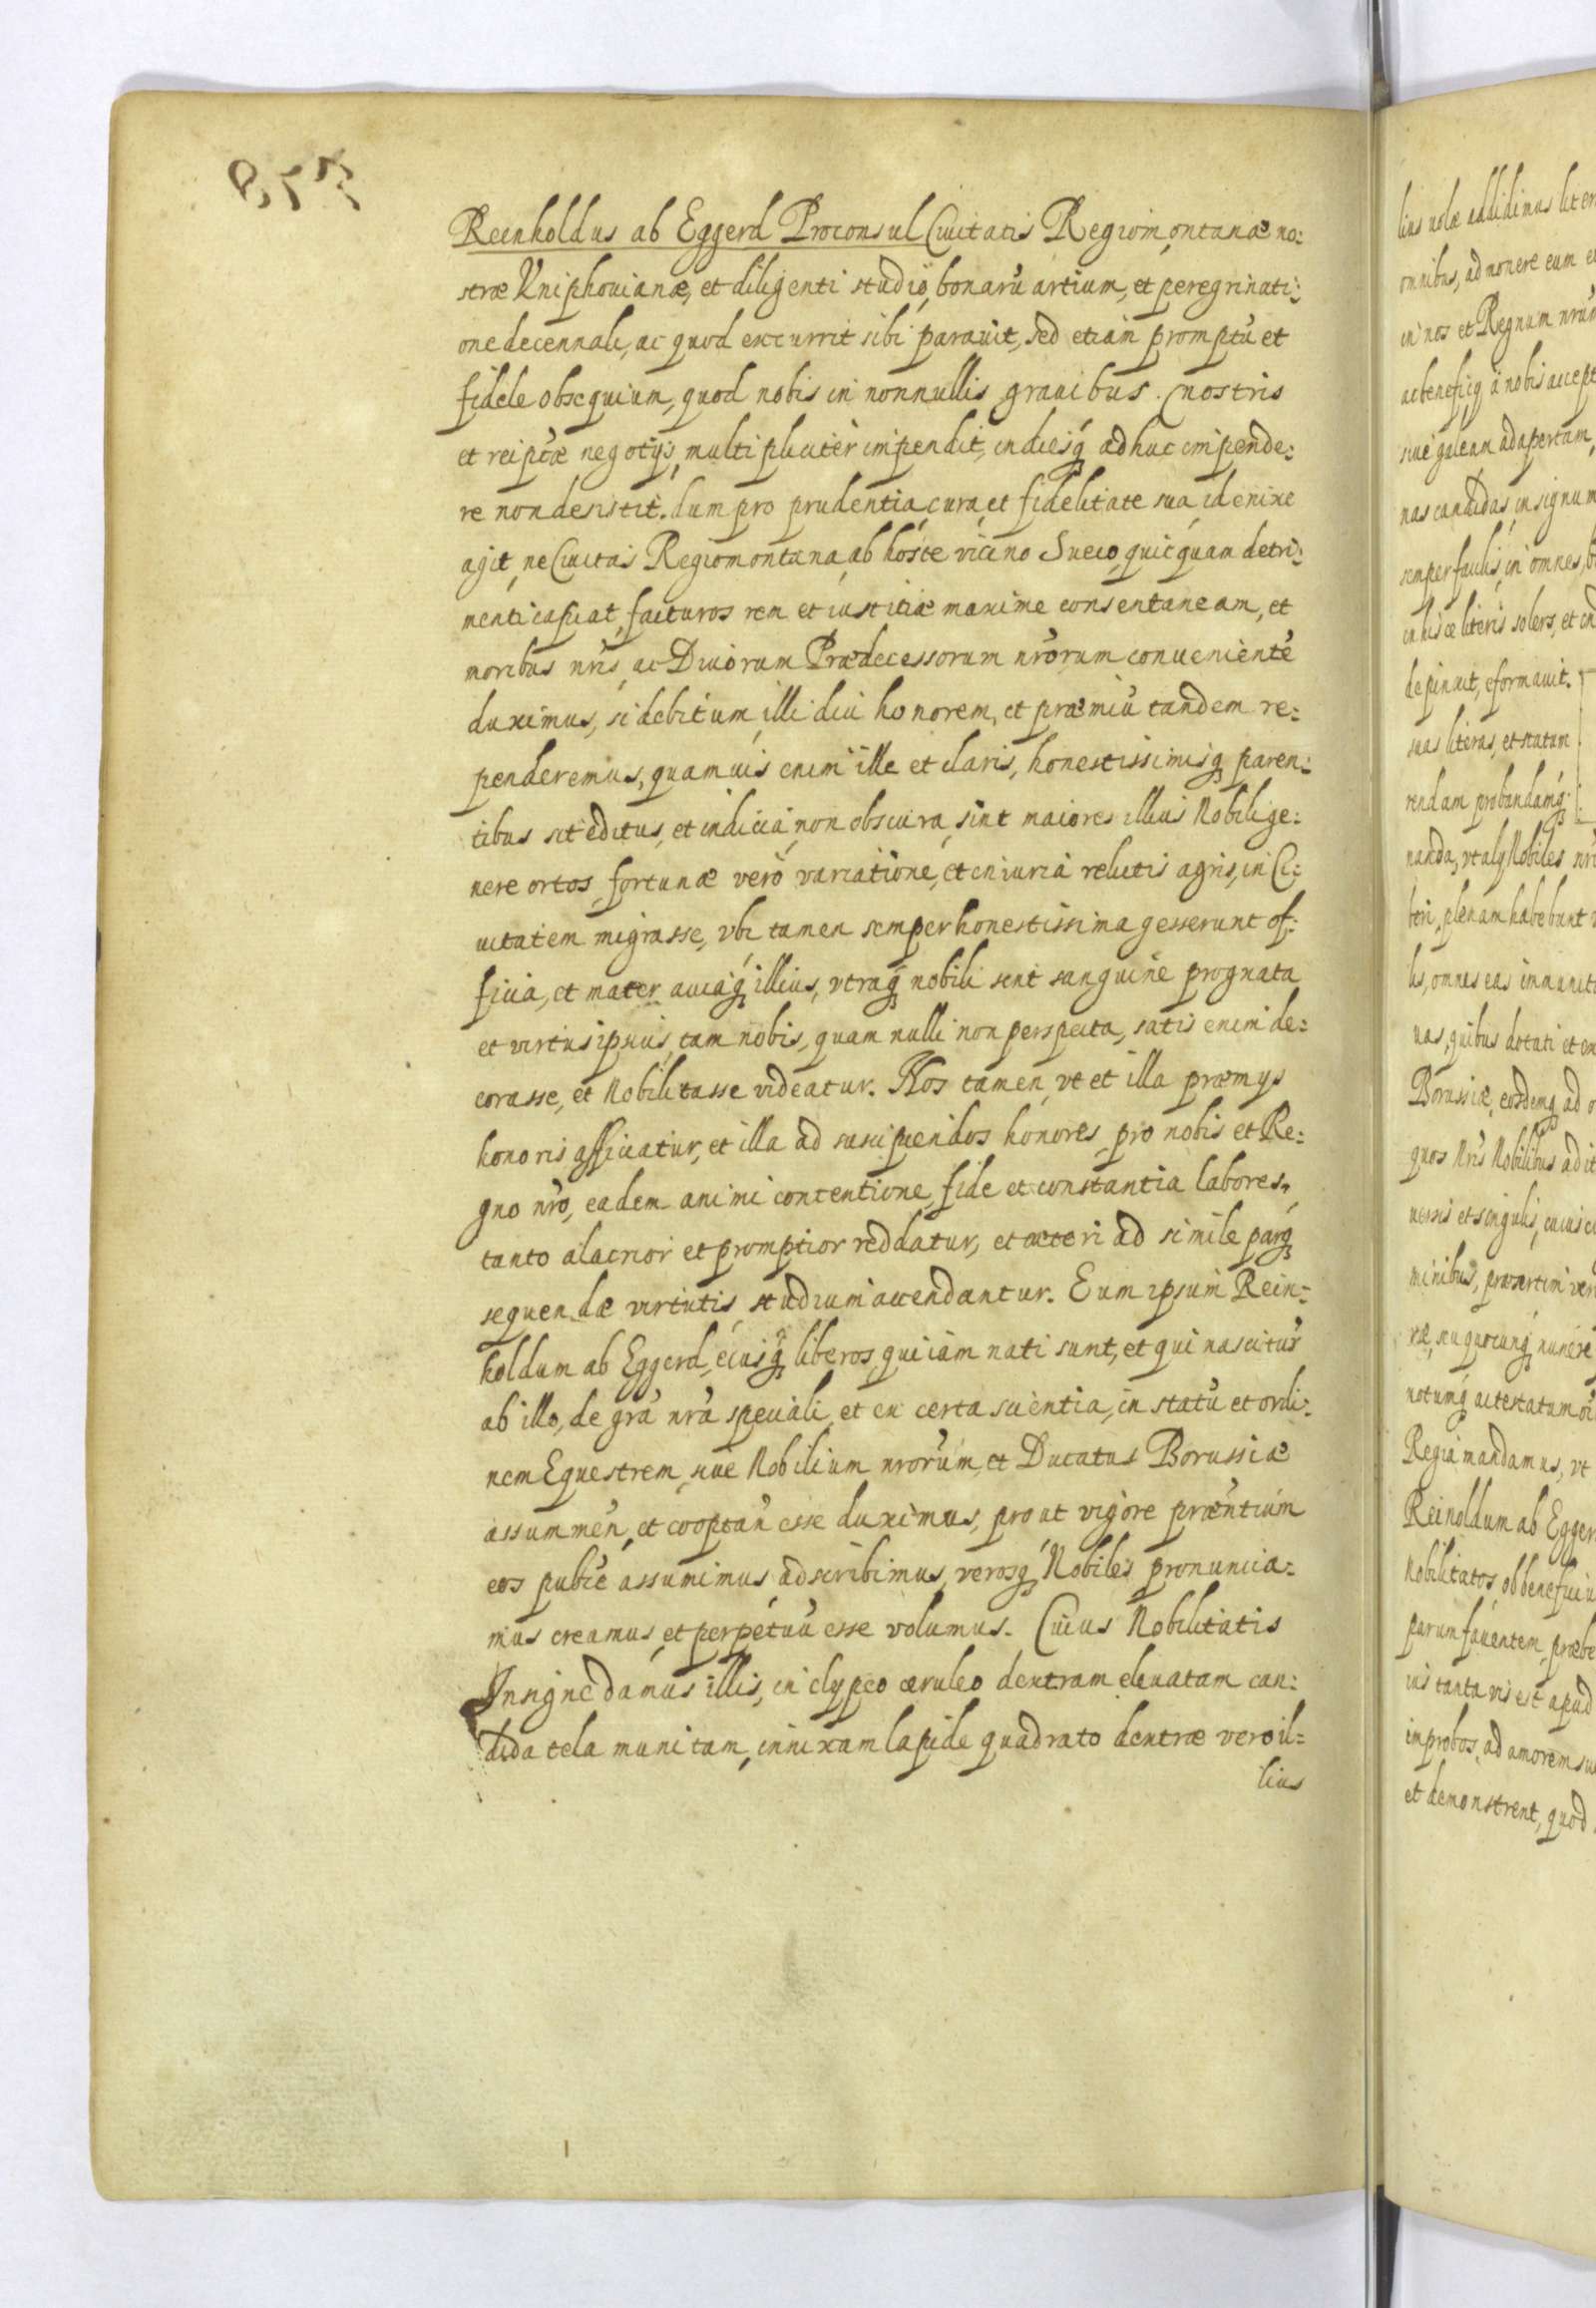 Reinholdus ab Eggerd Proconsul Ciuitatis Regiomontanæ no:
stræ Kniphouianæ, et diligenti studio, bonarũ artium, et peregrinati:
one decennali, ac quod excurrit sibi parauit, sed etiam promptũ et
fidele obsequium, quod nobis in nonnullis grauibus nostris
et reiptæ negotijs, multipliciter impendit, indiesq́ adhuc impende:
re non desistit. dum pro prudentia, cura, et fidelitate sua id enixe
agit, ne Ciuitas Regiomontana, ab hoste vicino Sueco, quicquam detri:
menti capiat, facturos rem et iustitiæ maxime consentaneam, et
moribus nr̃is, ac Diuorum Prædecessorum nr̃orum conuenientẽ
duximus, si debitum, illi diu honorem, et præmiũ tandem re:
penderemus, quamuis enim ille et claris, honestissimisq́ paren:
tibus sit editus, et indicia, non obscura, sint maiores illius Nobili ge:
nere ortos, fortunæ verò variatione, et iniuria relictis agris, in Ci:
uitatem migrasse, vbi tamen semper honestissima gesserunt of:
ficia, et mater auiaq́ illius, vtraq́ nobili sint sanguine prognata
et virtus ipsius, tam nobis, quam nulli non perspecta, satis enim de:
corasse, et Nobilitasse videatur. Nos tamen, vt et illa præmys
honoris afficiatur, et illa ad suscipiendos honores, pro nobis et Re:
gno nr̃o, eadem animi contentione, fide et constantia labores,
tanto alacrior et promptior reddatur, et cæteri ad simile parq́
sequendæ virtutis, studium accendantur. Eum ipsum Rein:
holdum ab Eggerd, eiusq́ liberos, qui iam nati sunt, et qui nascitur̃
ab illo, de gr̃a nr̃a speciali, et ex certa scientia, in statũ et ordi:
nem Equestrem, siue Nobilium nr̃orum, et Ducatus Borussiæ
assummen̄, et cooptan̄ esse duximus, prout vigore præn̄tium
eos publ̃ce assumimus adscribimus, verosq́ Nobiles pronuncia:
mus creamus, et perpetuũ esse volumus. Cuius Nobilitatis
Insigne damus illis, in clypeo cæruleo dextram eleuatam can:
dida tela munitam, innixam lapide quadrato dextræ vero il:
lius
lius uolæ addidimus
omnibus, admonere eum
in nos et Regnum nr̃um
ac beneficij à nobis accept
siue galeam adapertam,
nas candidas, in signum
semper facilis, in omnes,
in hisce literis solers, et
depinxit, eformauit.
suas literas, et statum
rendam probandamq́
nanda, vt alij Nobiles
plenam habebunt
omnes eas immunita
uas, quibus dotati et
Borussiæ, eosdemq́ ad
quos Nr̃is Nobilibus
uersis et singulis, cuius
minibus, præsertim
seu quocunq́ munere
notumq́ ac testatum
Regia mandamus, vt
Reinoldum ab Egger
Nobilitatos, ob
parum fauentem, præbe
ius tanta vis est apud
improbos, ad amorem
et demonstrent, quod